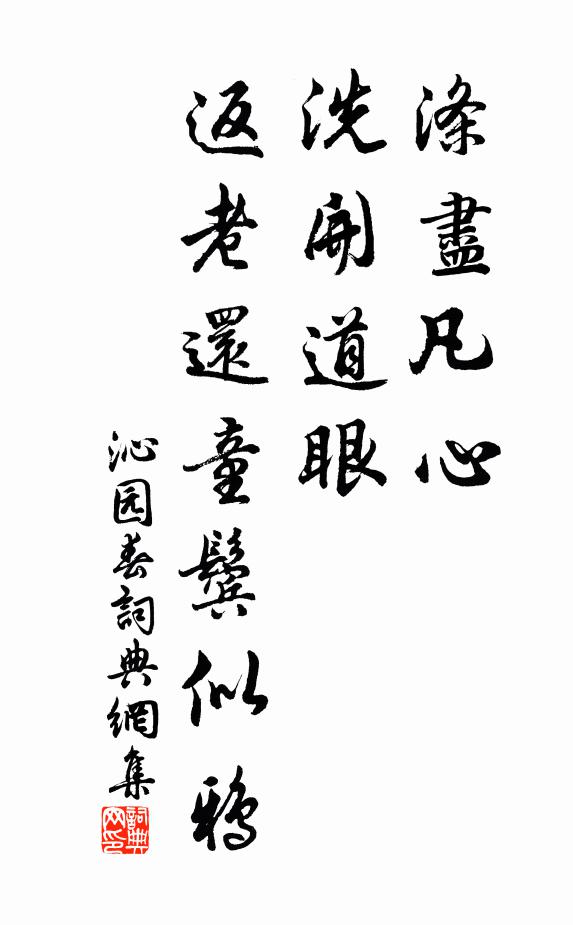 滌盡凡心
洗開道眼
返老還童鬢似鴉
沁园春詞典網集
詞典网印